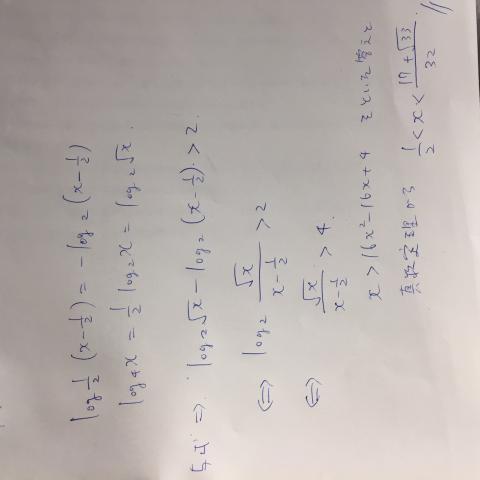 log_{1/2}(x-1/2) = -log_2(x-1/2)
log_4 x = 1/2 log_2 x = log_2 √x.
与式 ⇒ log_2 √x - log_2(x-1/2) > 2.
⇔ log_2 √x/(x-1/2) > 2
⇔ √x/(x-1/2) > 4.
x > 16x²-16x+4
真数 1/2 < x < (17+√33)/32 //